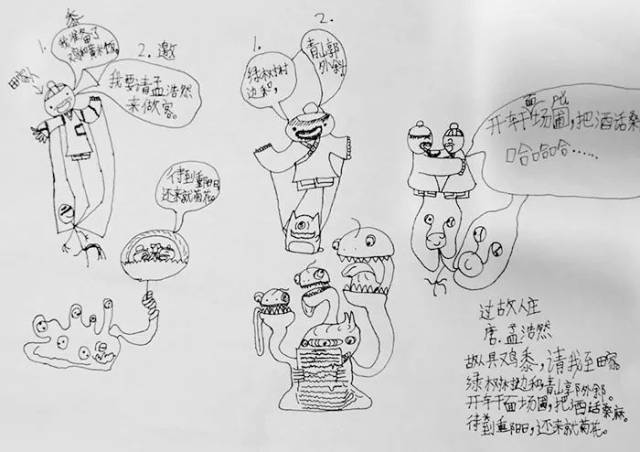 黍
1.
我准备了
鸡和黄米饭。
2. 邀
我要请孟浩然
来做客。
1.
绿树村
边合。
2.
青山郭
外斜
面
开轩场圃,把酒话桑
哈哈哈……
待到重阳日
还来就菊花。
过故人庄
唐.孟浩然
故人具鸡黍,请我至田家。
绿树村边合,青山郭外斜。
开轩面场圃,把酒话桑麻。
待到重阳日,还来就菊花。